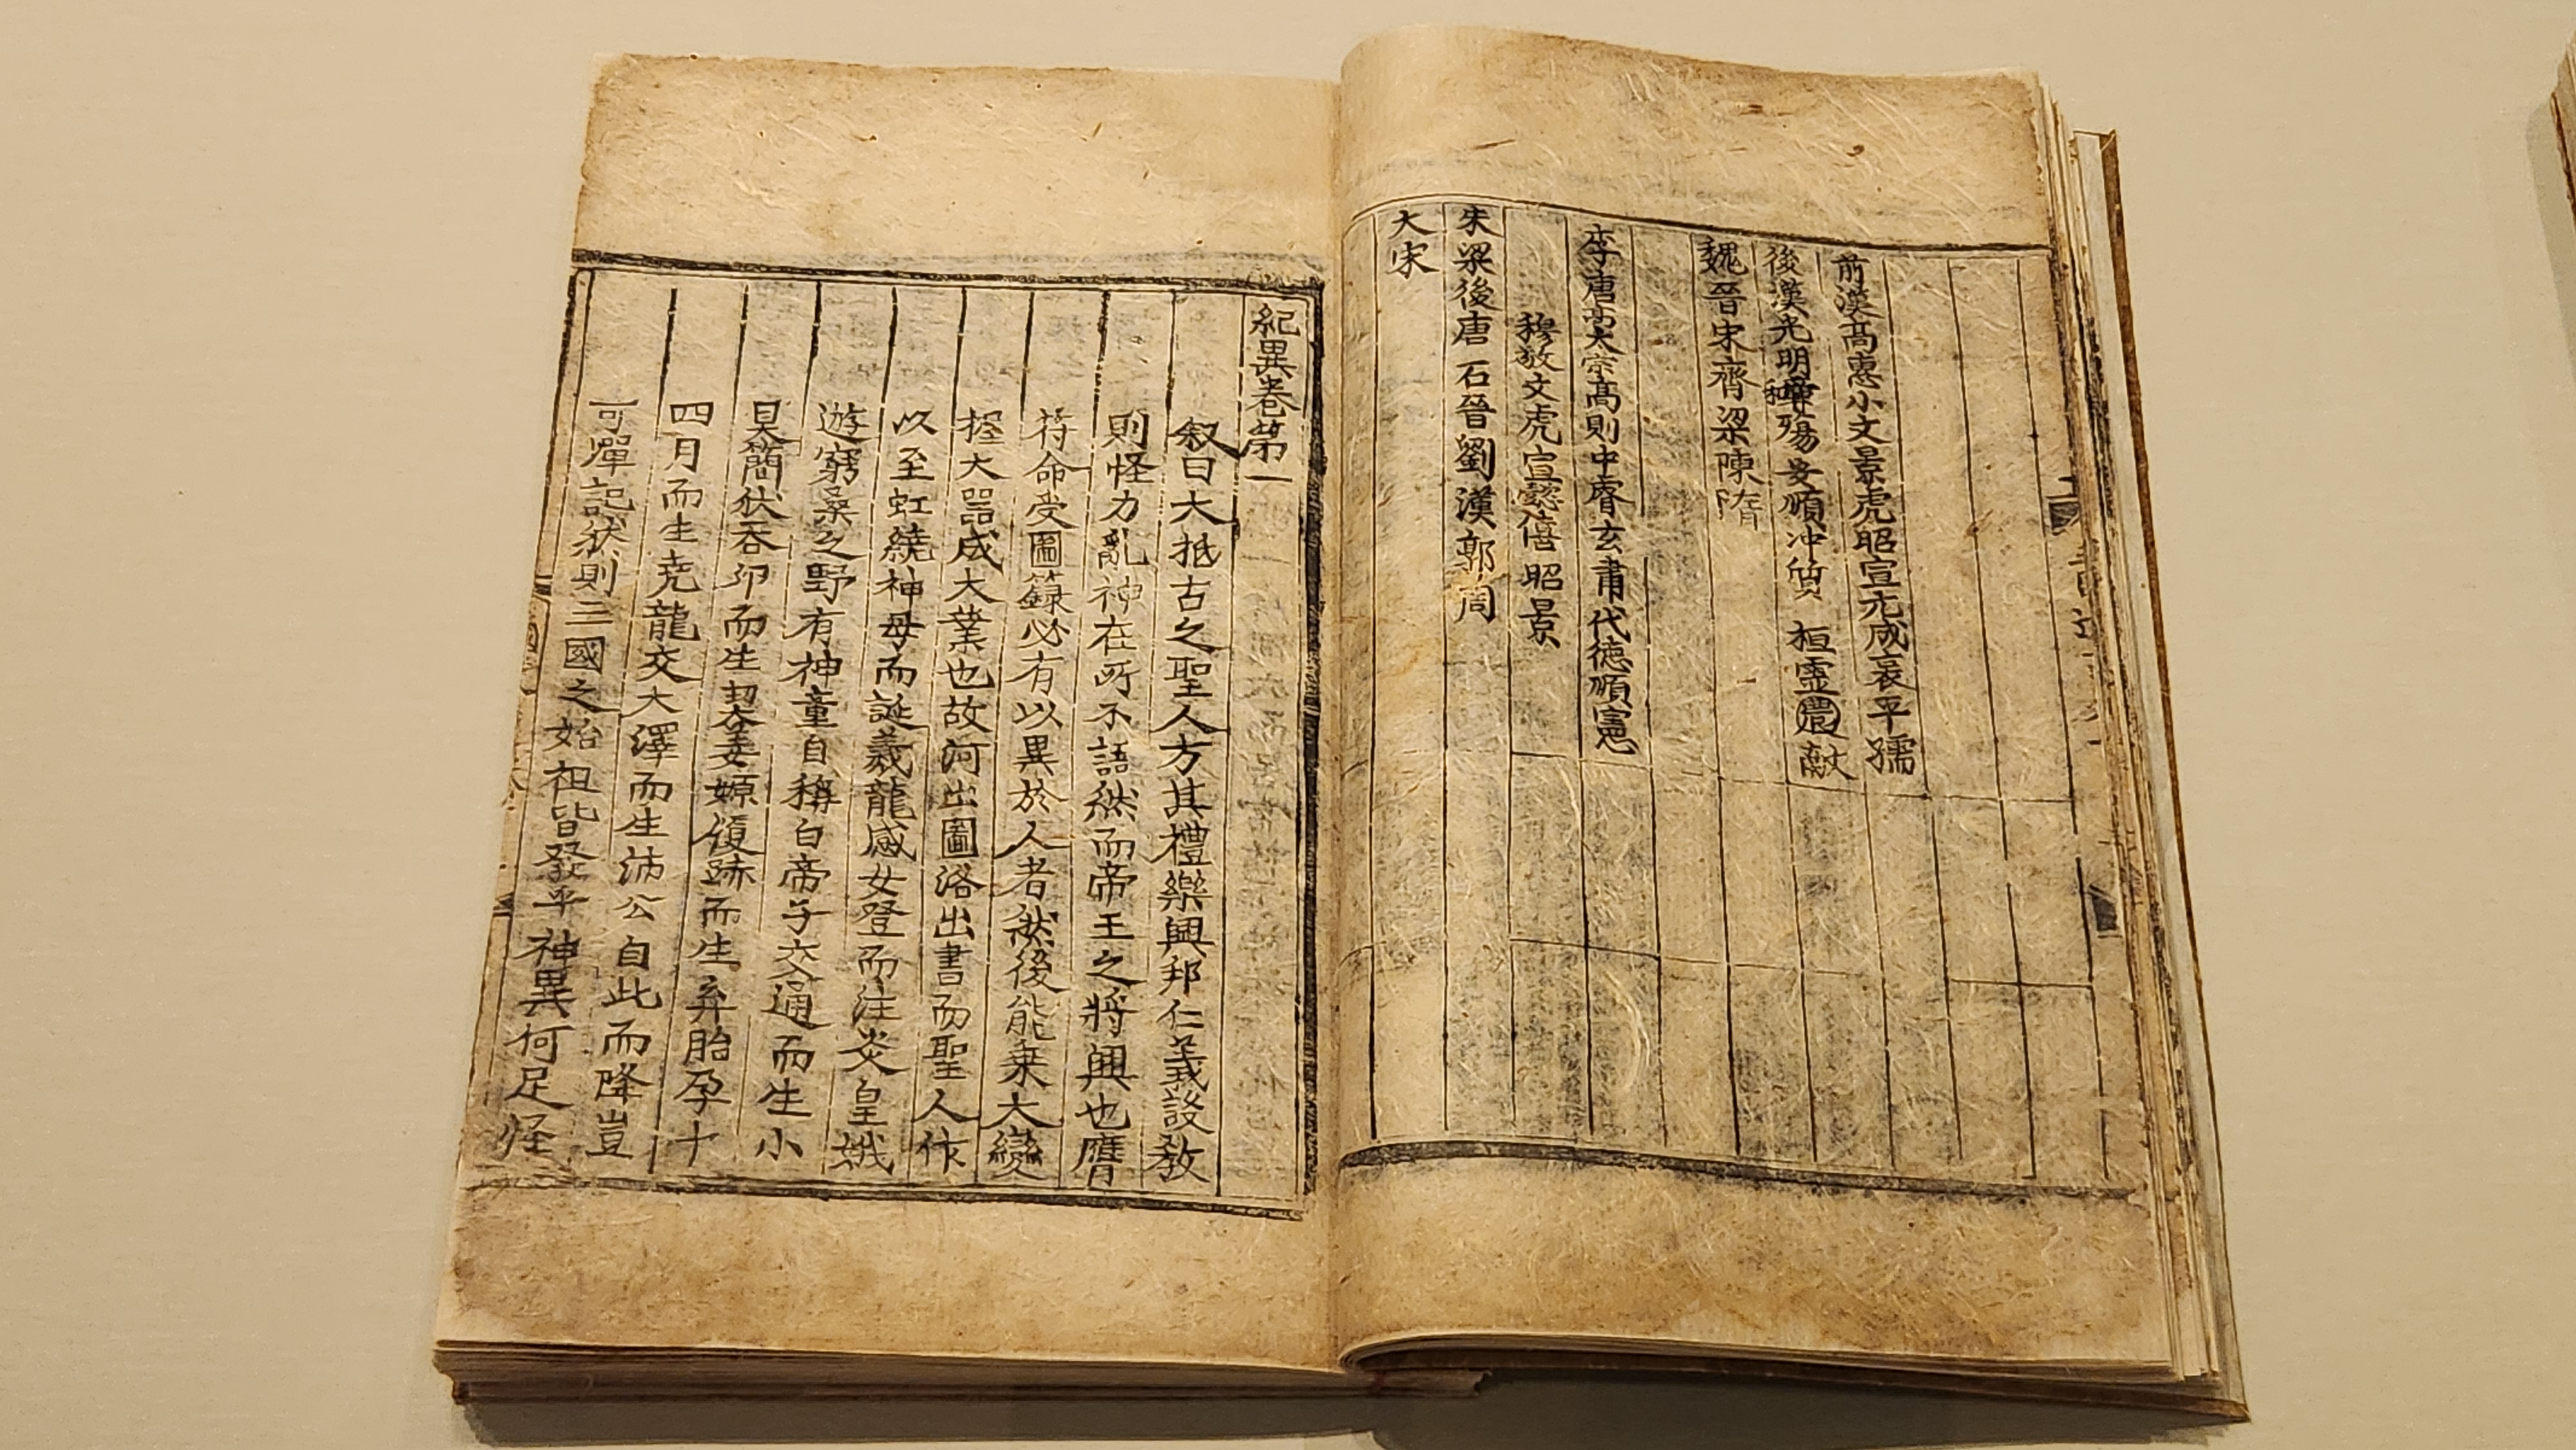 前漢高惠小文景虎昭宣元成哀平孺
後漢光明章和殤安順冲質 桓靈農献
魏晉宋齊梁陳隋
李唐高太宗高則中睿玄肅代德順憲
穆敬文虎宣懿僖昭景
朱梁後唐 石晉劉漢郭周
大宋
紀異卷第一
叙曰大抵古之聖人方其禮樂興邦仁義設敎
則怪力亂神在所不語然而帝王之將興也膺
符命受圖籙必有以異於人者然後能乗大變
握大噐成大業也故河出圖洛出書而聖人作
以至虹繞神母而誕羲龍感女登而注炎皇娥
遊窮桑之野有神童自稱白帝子交通而生小
昊簡狄吞卵而生契姜嫄履跡而生弃胎孕十
四月而生堯龍交大澤而生沛公自此而降豈
可殫記然則三國之始祖皆發乎神異何足怪